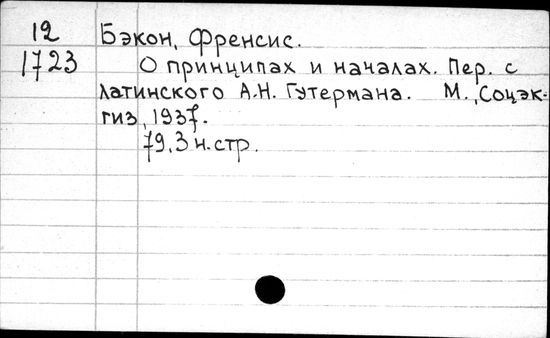 12 Бэкон, Френсис.
1723 О принципах и началах. Пер. с
латинского А.Н. Гутермана. М., Соцэк-
гиз, 1937.
79,3 н.стр.